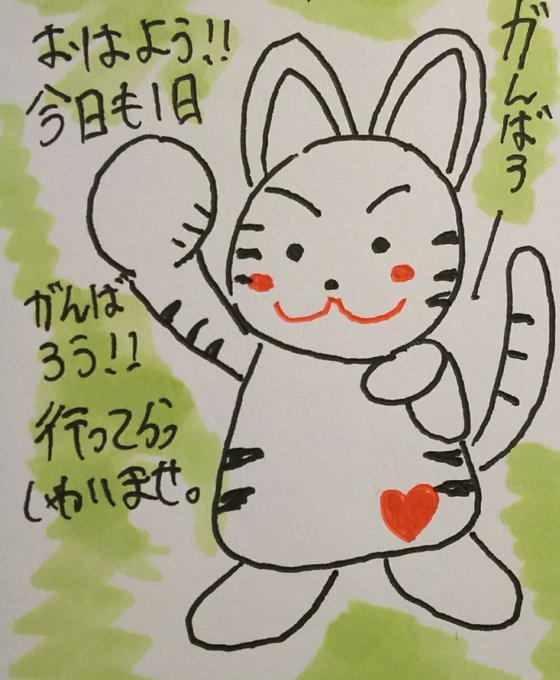 おはよう!!
今日も1日
がんば
ろう!!
行ってらっ
しゃいませ。
がんばろ